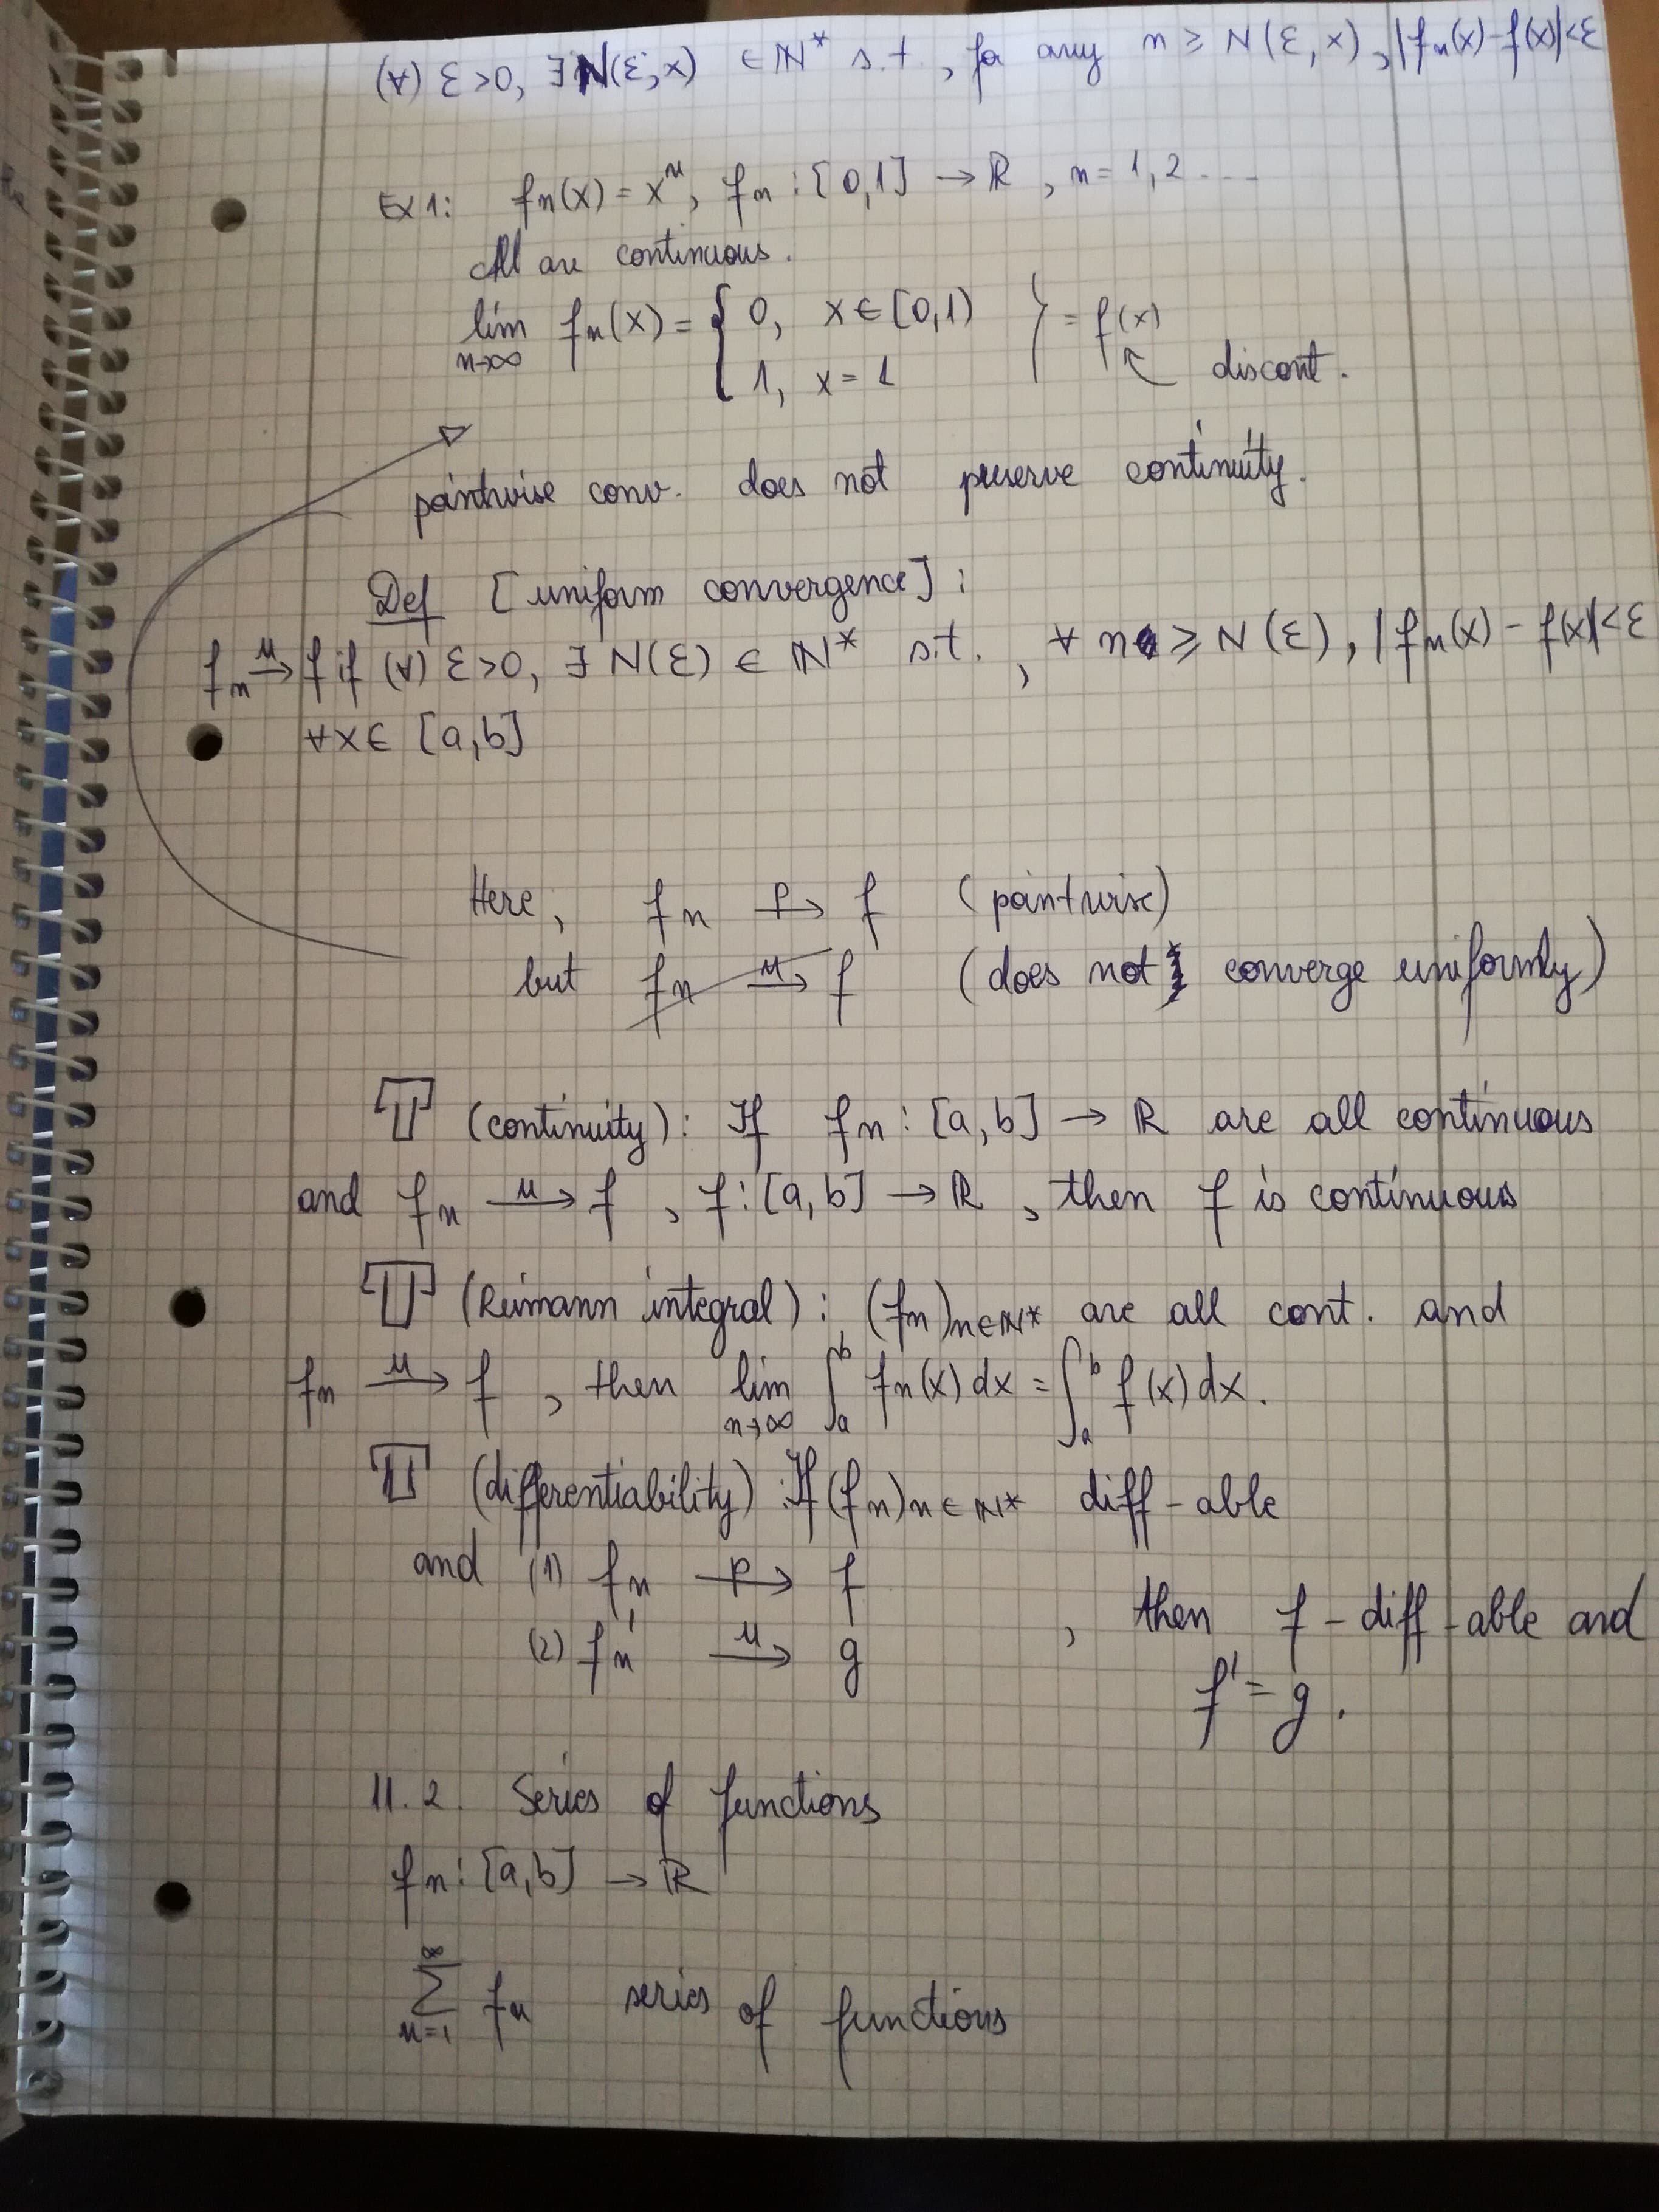 (∀) ε>0, ∃N(ε,x) ∈ ℕ* s.t., for any n ≥ N(ε,x), |fₙ(x)-f(x)|<ε
EX1: fₙ(x) = xⁿ, fₙ : [0,1] → ℝ, n = 1,2 ...
All are continuous.
lim n→∞ fₙ(x) = { 0, x ∈ [0,1) } = f(x)
1, x = 1 discont.
pointwise conv. does not preserve continuity.
Def [uniform convergence]:
fₙ →ᵘ f if (∀) ε>0, ∃ N(ε) ∈ ℕ* s.t., ∀ n ≥ N(ε), |fₙ(x) - f(x)|<ε
∀x∈ [a,b]
Here, fₙ →ᵖ f (pointwise)
but fₙ →ᵘ f (does not converge uniformly)
T (continuity): If fₙ : [a,b] → ℝ are all continuous
and fₙ →ᵘ f, f: [a,b] → ℝ, then f is continuous
T (Reimann integral): (fₙ)n∈ℕ* are all cont. and
fₙ →ᵘ f, then lim n→∞ ∫ₐᵇ fₙ(x) dx = ∫ₐᵇ f(x) dx.
T (differentiability): If (fₙ)n∈ℕ* diff-able
and (1) fₙ →ᵖ f
(2) fₙ' →ᵘ g , then f - diff-able and
f' = g.
11.2. Series of functions
fₙ: [a,b] → ℝ
∞
∑ fₙ series of functions
n=1